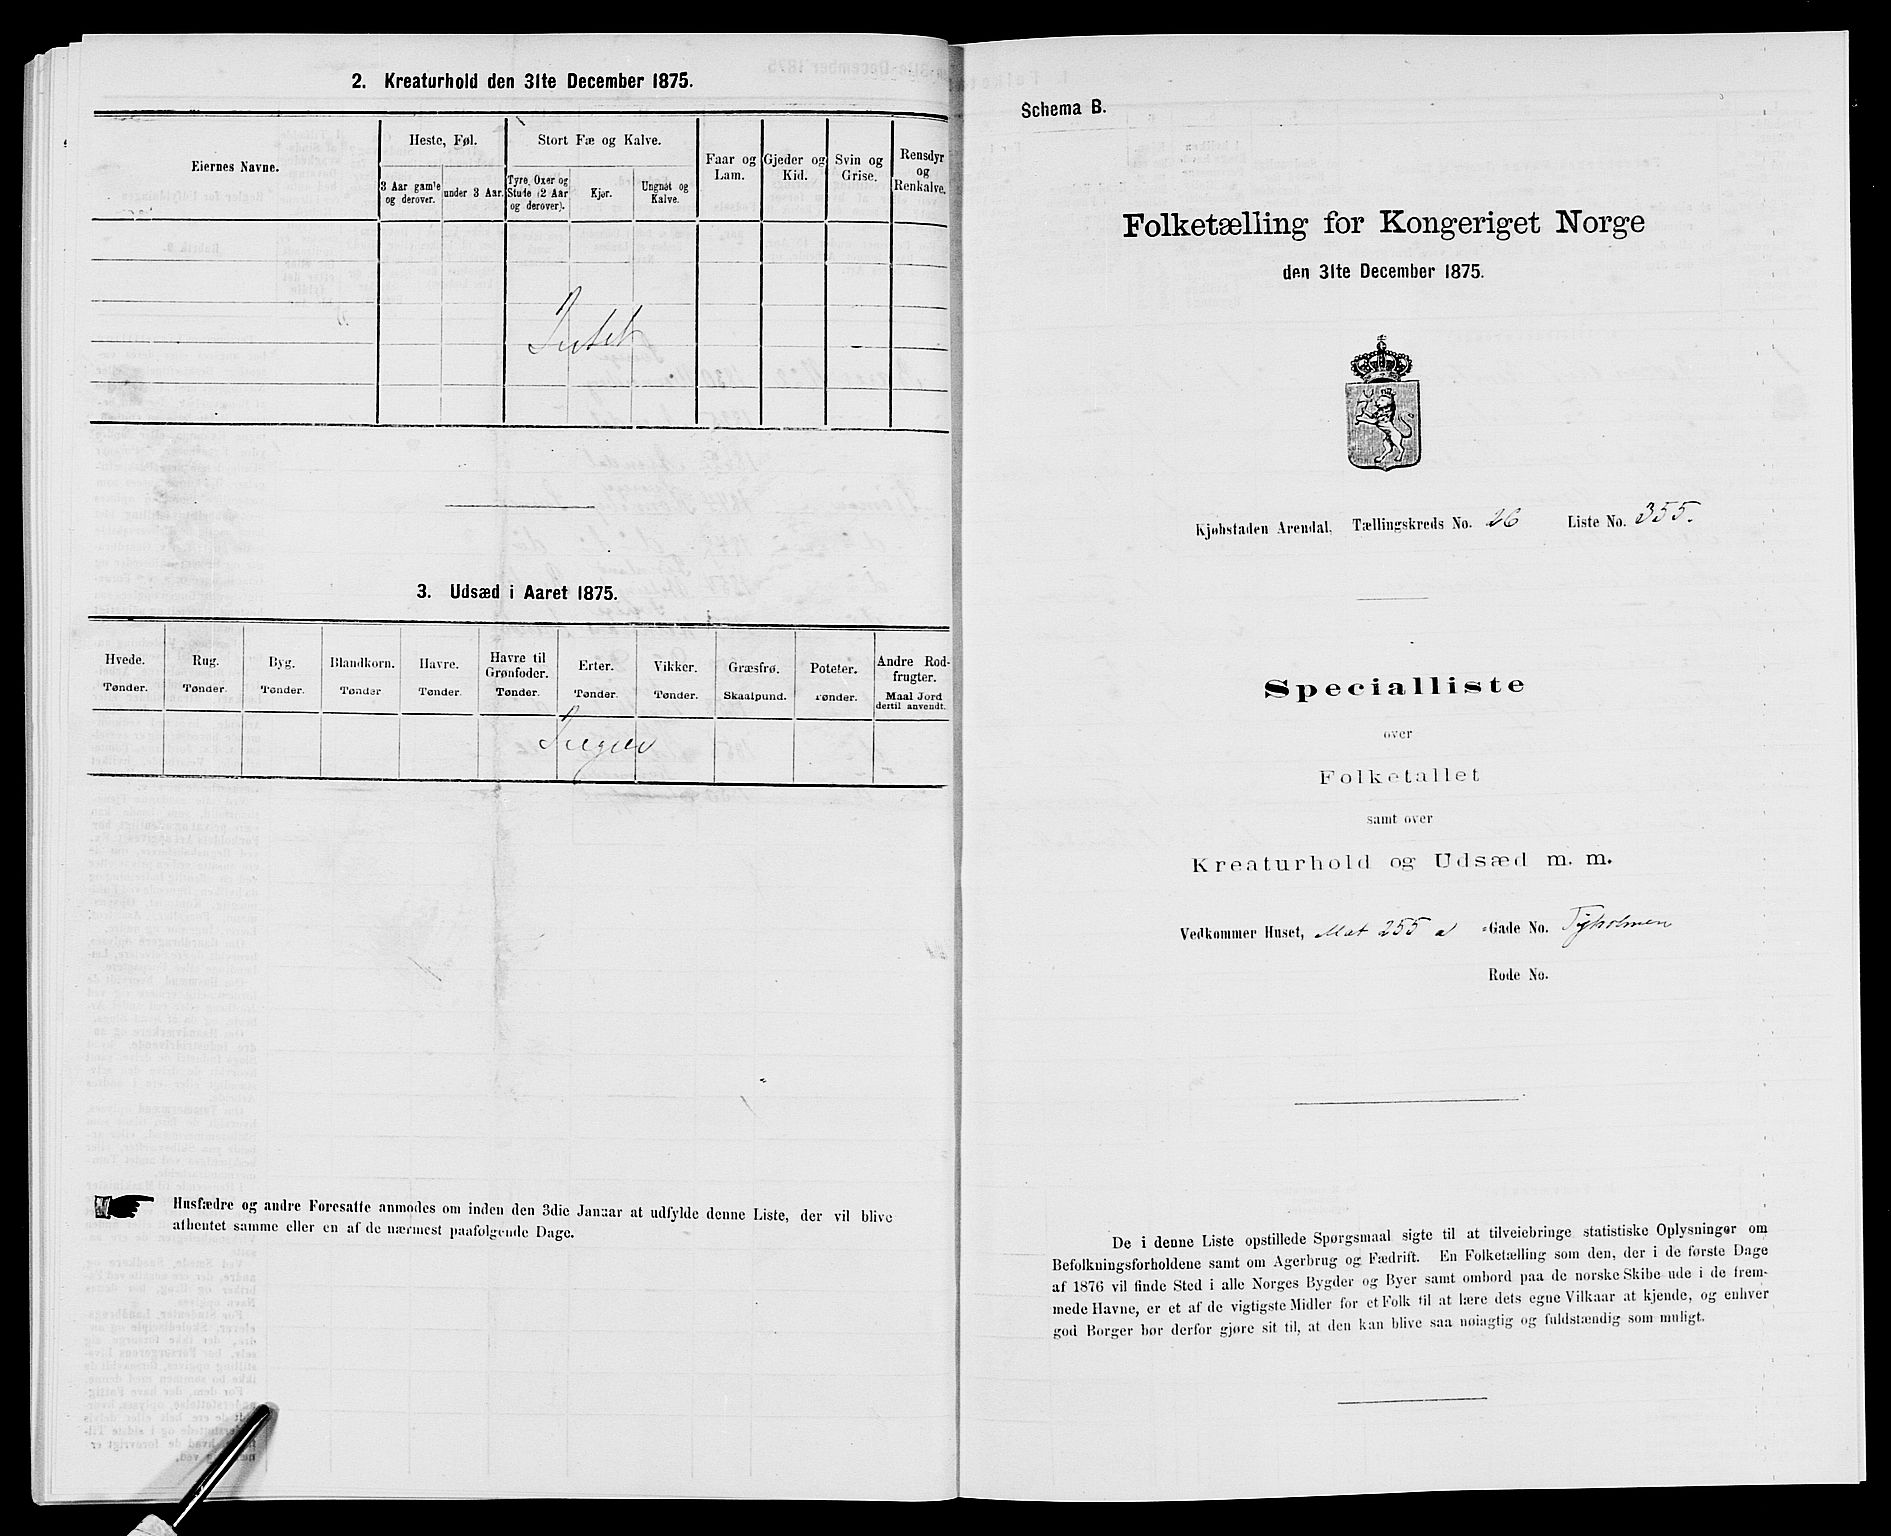 2. Kreaturhold den 31te December 1875.
Eiernes Navne.
Heste, Føl.
3 Aar gam'e og derover.
under 3 Aar.
Stort Fæ og Kalve.
Tyre, Oxer og Stude (2 Aar og derover).
Kjør.
Ungnøt og Kalve.
Faar og Lam.
Gjeder og Kid.
Svin og Grise.
Rensdyr og Renkalve.
Intet
3. Udsæd i Aaret 1875.
Hvede. Rug. Byg. Blandkorn. Havre. Havre til Grønfoder. Erter. Vikker. Græsfrø. Poteter. Andre Rodfrugter.
Tønder. Tønder. Tønder. Tønder Tønder. Tønder. Tønder. Tønder. Skaalpund. Tønder. Maal Jord dertil anvendt.
Ingen
Husfædre og andre Foresatte anmodes om inden den 3die Januar at udfylde denne Liste, der vil blive
afhentet samme eller en af de nærmest paafølgende Dage.
Schema B.
Folketælling for Kongeriget Norge
den 31te December 1875.
Kjøbstaden Arendal, Tællingskreds No. 26 Liste No. 355.
Specialliste
over
Folketallet
samt over
Kreaturhold og Udsæd m. m.
Vedkommer Huset, Mat 255 a -Gade No. Tyholmen
Rode No.
De i denne Liste opstillede Spørgsmaal sigte til at tilveiebringe statistiske Oplysninger om
Befolkningsforholdene samt om Agerbrug og Fædrift. En Folketælling som den, der i de første Dage
af 1876 vil finde Sted i alle Norges Bygder og Byer samt ombord paa de norske Skibe ude i de frem-
mede Havne, er et af de vigtigste Midler for et Folk til at lære dets egne Vilkaar at kjende, og enhver
god Borger bør derfor gjøre sit til, at den kan blive saa nøiagtig og fuldstændig som muligt.